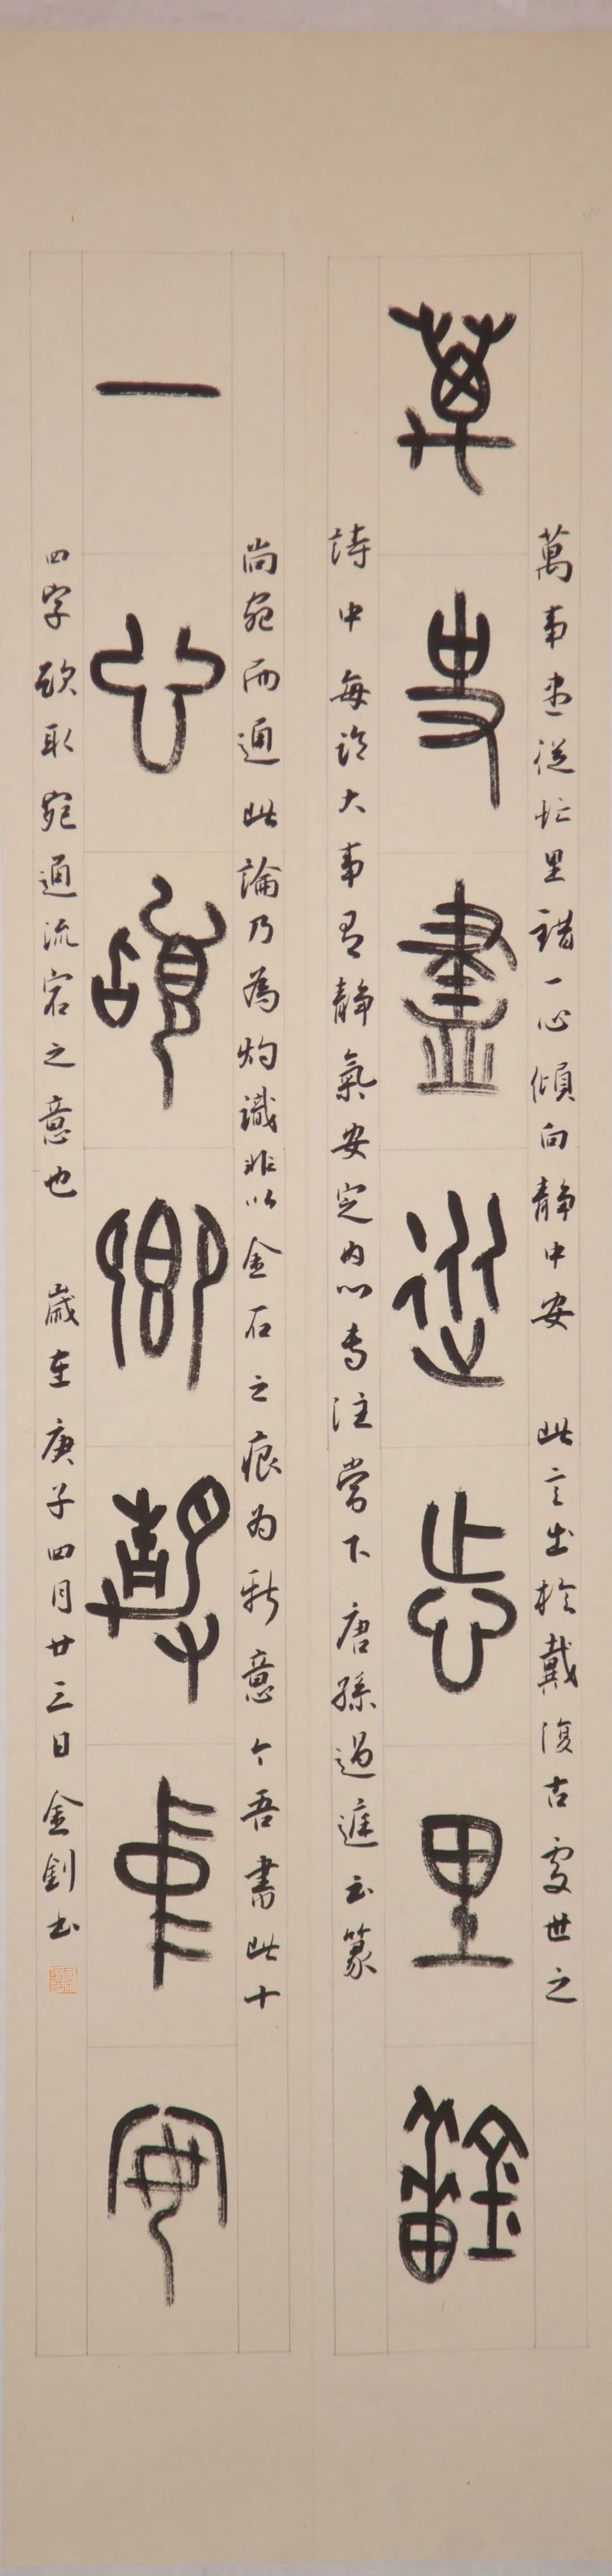 萬事盡從忙里錯
一心傾向靜中安
萬事盡從忙里錯一心傾向靜中安 此言出於戴復古處世之
詩中每臨大事有静氣安定内心專注當下 唐孫過庭云篆
尚宛而通此論乃為灼識非以金石之痕為新意今吾書此十
四字欲取宛通流宕之意也 歲在庚子四月廿三日金劍书